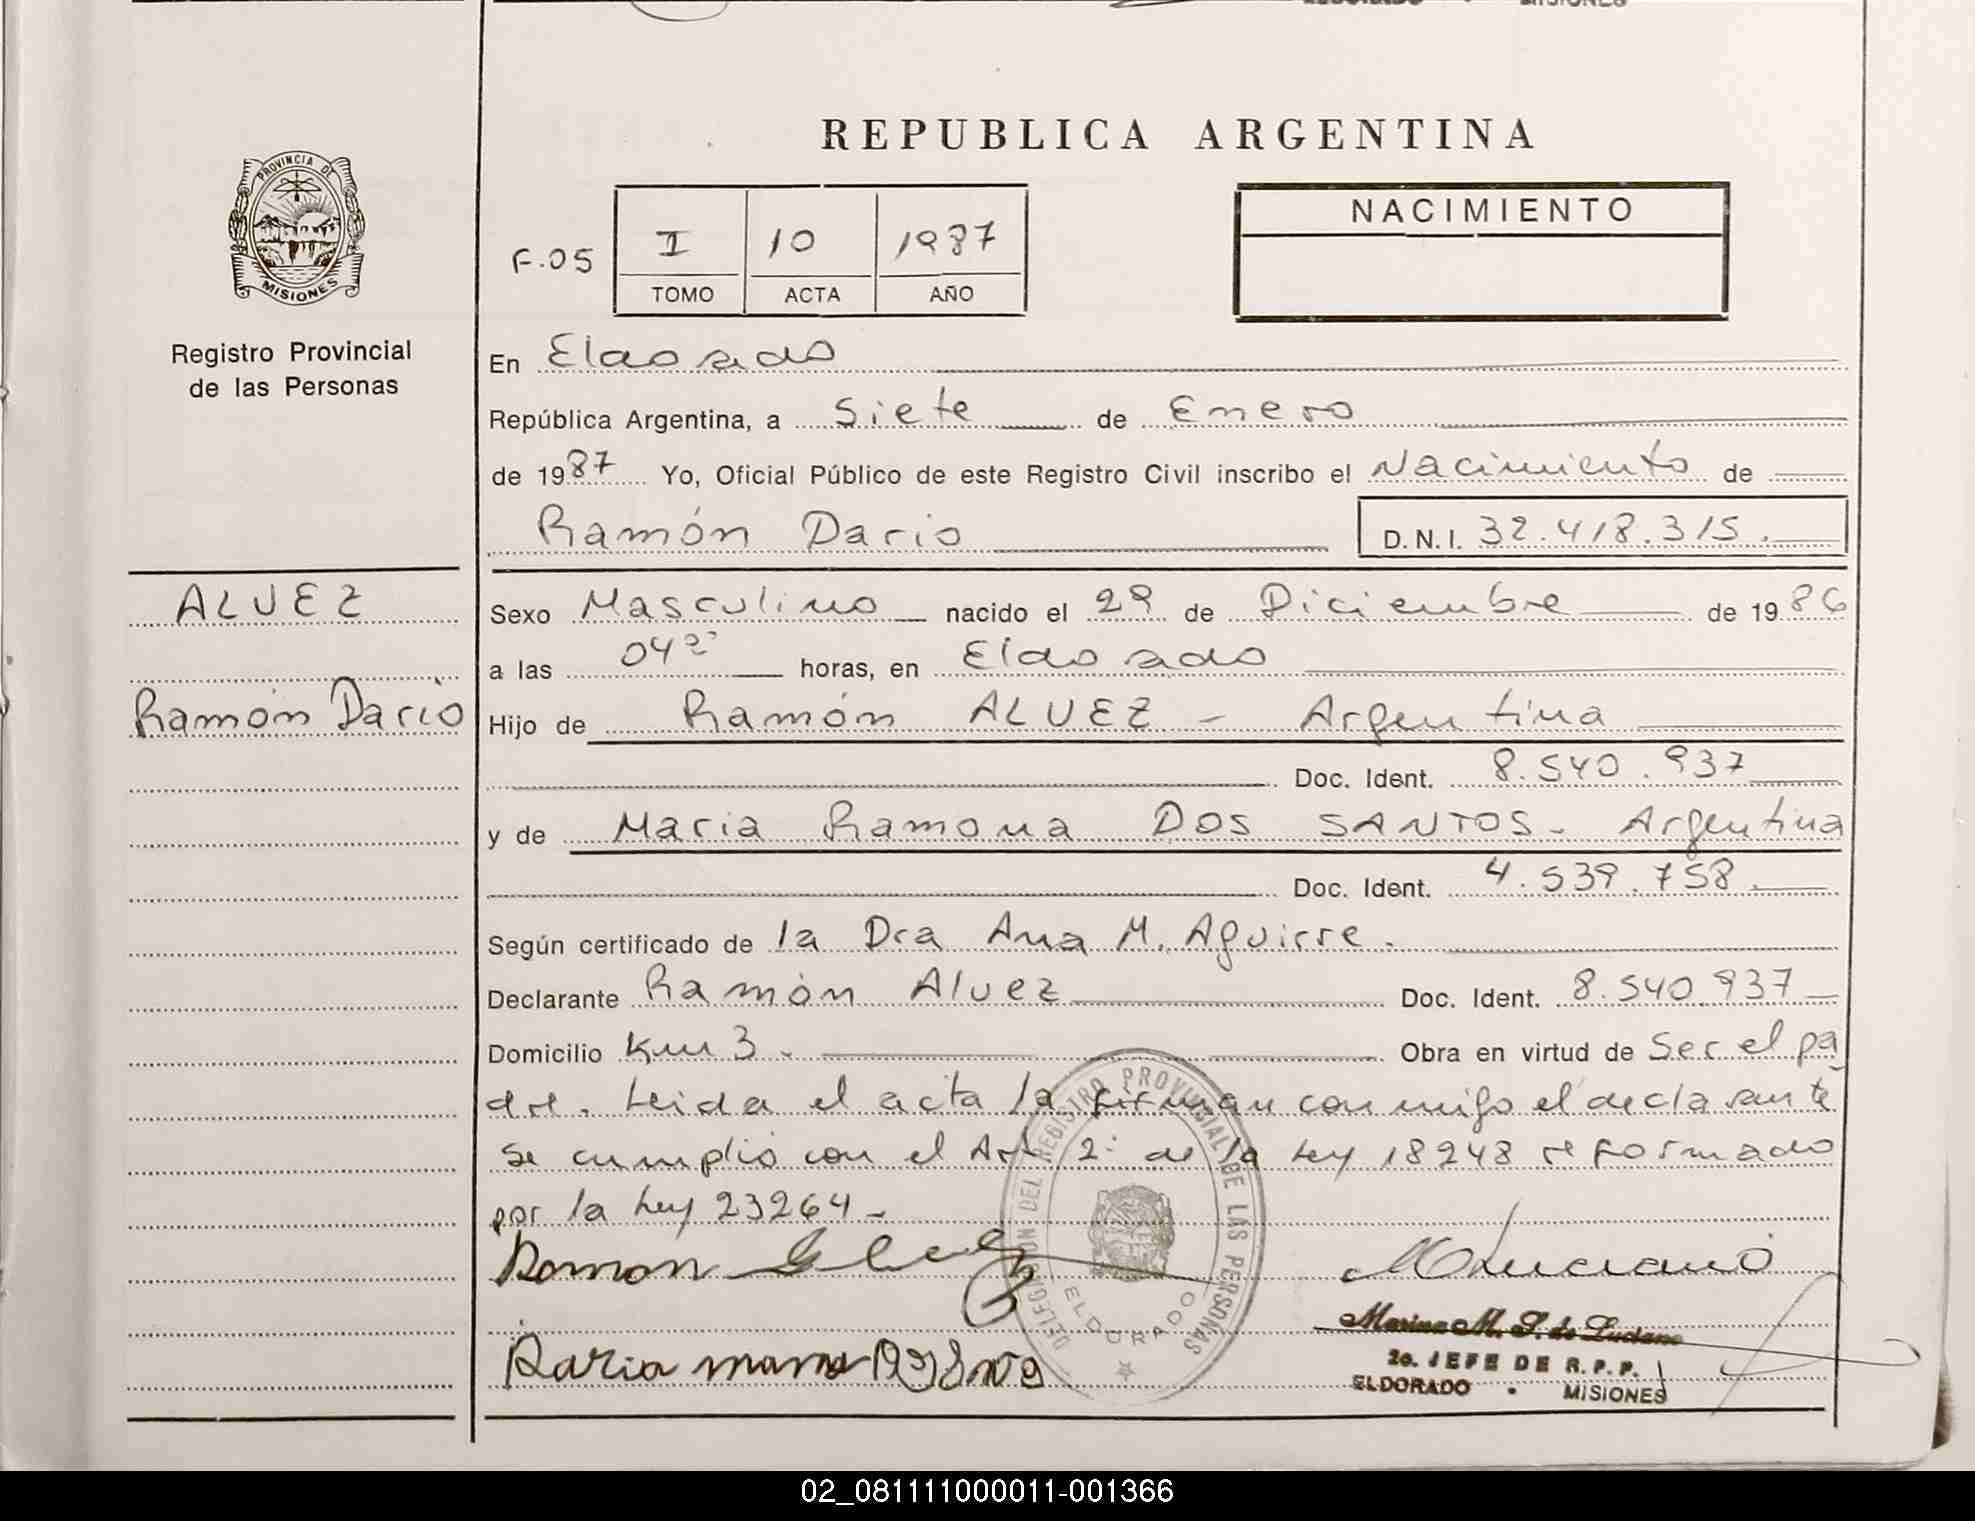 REPUBLICA ARGENTINA
PROVINCIA DE
MISIONES
Registro Provincial
de las Personas
F.05
I 10 1987
TOMO ACTA AÑO
NACIMIENTO
En Eldorado
República Argentina, a Siete de Enero
de 1987 Yo, Oficial Público de este Registro Civil inscribo el Nacimiento de
Ramón Dario D.N.I. 32.418.315.
ALVEZ
Ramón Dario
Sexo Masculino nacido el 29 de Diciembre de 1986
a las 04 horas, en Eldorado
Hijo de Ramón ALVEZ - Argentina
Doc. Ident. 8.540.937
y de Maria Ramona DOS SANTOS - Argentina
Doc. Ident. 4.539.758.
Según certificado de la Dra Ana M. Aguirre.
Declarante Ramón Alvez Doc. Ident. 8.540.937
Domicilio Km 3. Obra en virtud de Ser el pa
dre. Leida el acta la firman conmigo el declarante
se cumplió con el Art 2: de la Ley 18248 reformado
por la Ley 23264-
DELEGACION DEL REGISTRO PROVINCIAL DE LAS PERSONAS
ELDORADO
Ramon
Maria
MLuciano
Marina M. S. de Luciano
2o. JEFE DE R.P.P.
ELDORADO - MISIONES
02_081111000011-001366